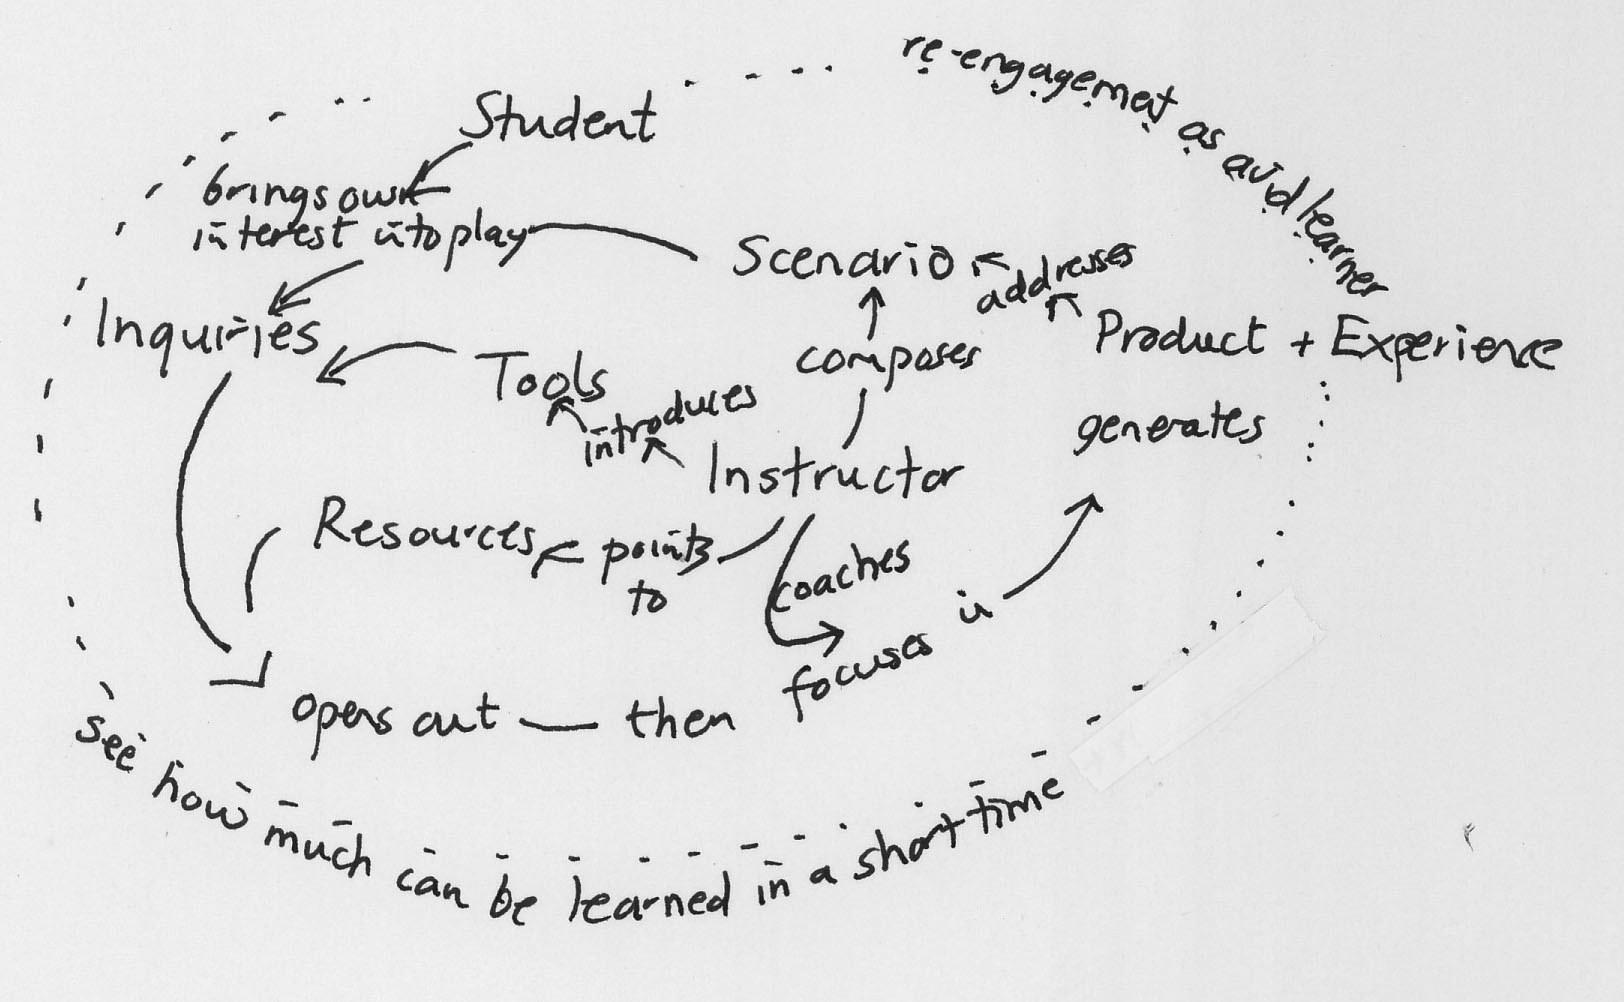 re-engagemet as avid learner
Student
brings own
interest into play
Scenario
addresses
Product + Experience
Inquiries
Tools
introduces
composes
generates
Instructor
Resources
points
to
coaches
focuses
in
opens out — then
see how much can be learned in a short time